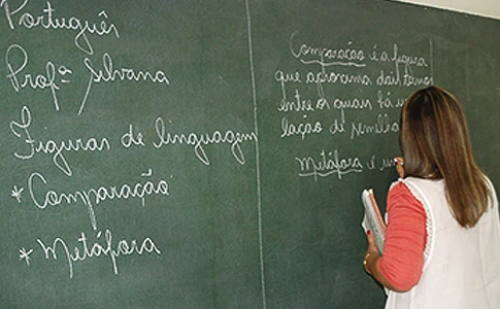 Português
Profª Silvana
Figuras de linguagem
* Comparação
* Metáfora
Comparação é a figura
que aproxima dois termos
entre os quais há u
lação de semelha
Metáfora é um